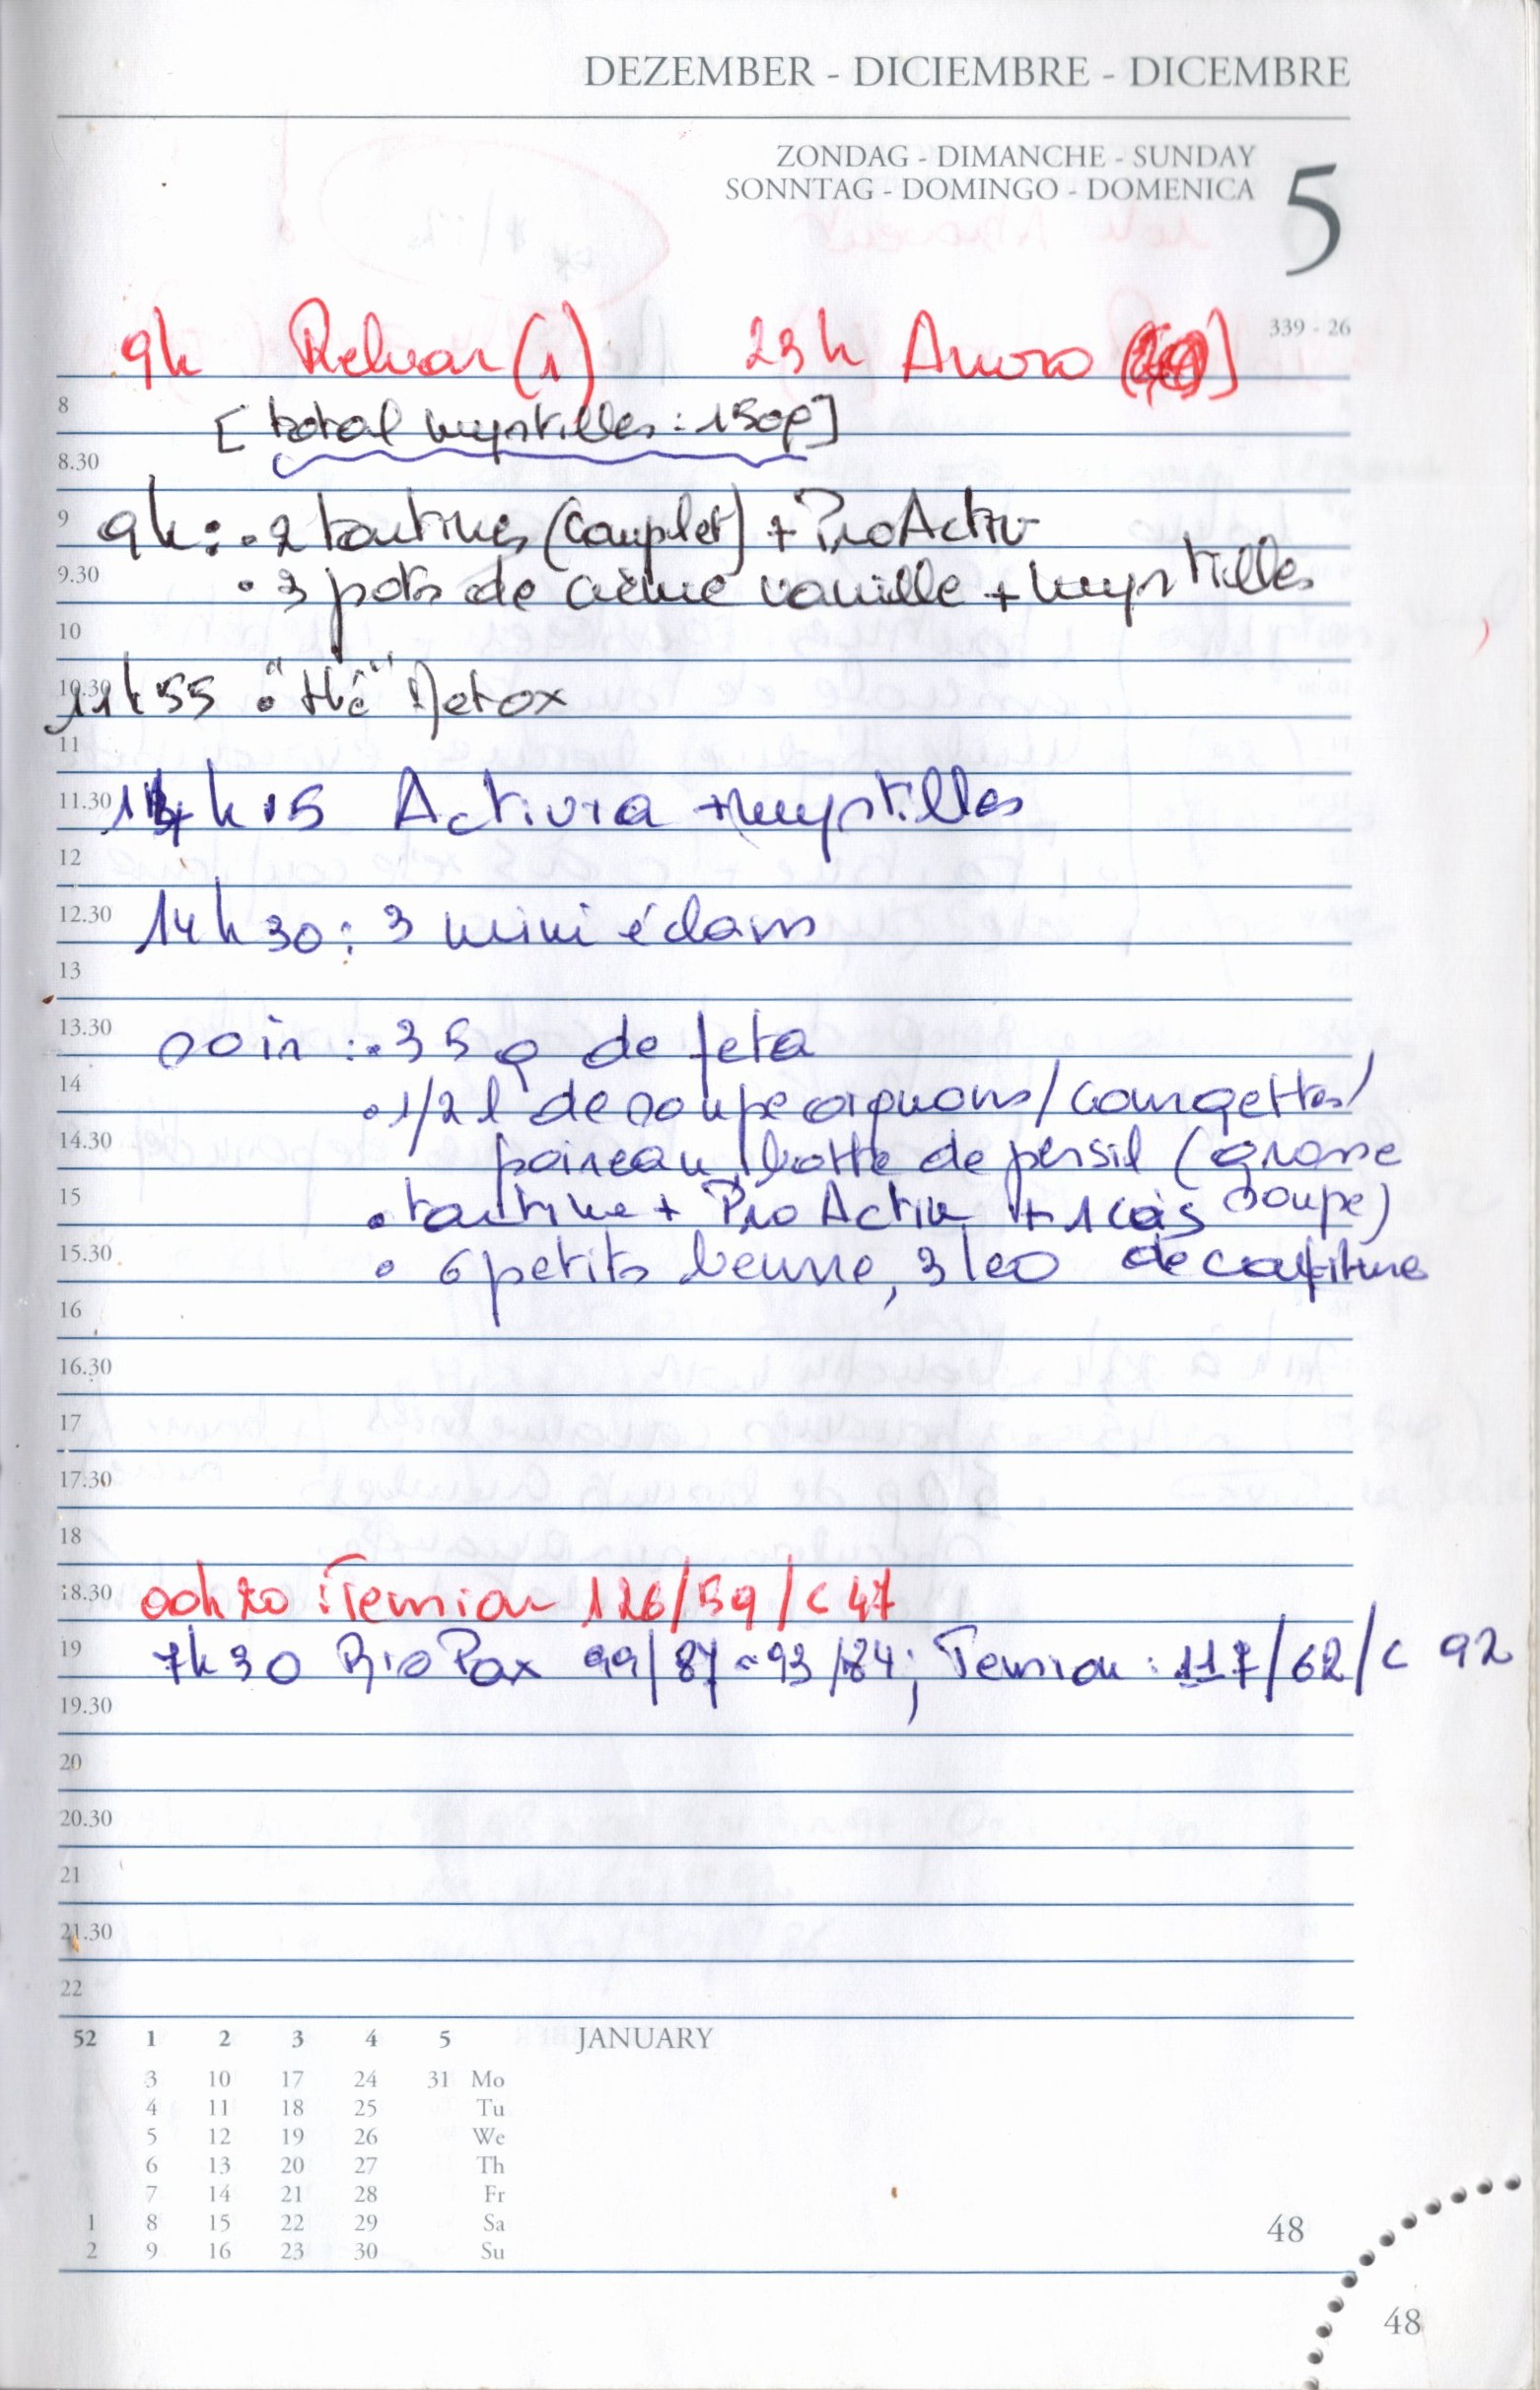 DEZEMBER - DICIEMBRE - DICEMBRE
ZONDAG - DIMANCHE - SUNDAY
SONNTAG - DOMINGO - DOMENICA
5
339 - 26
9h Relvar (1) 23h
8
[total myrtilles : 150g]
8.30
9
9h : • 2 tartines (complet) + ProActiv
9.30
• 3 pots de crème vanille + myrtilles
10
10.30
11h55 • "thé" Detox
11
11.30
14h15 Activia + myrtilles
12
12.30
14h30 : 3 mini éclairs
13
13.30
soir : • 35 g de feta
14
• 1/2 l de soupe oignons / courgettes /
14.30
poireau, botte de persil (grosse
15
• tartine + ProActiv + 1 càs soupe)
15.30
• 6 petits beurre, 3 leo de confiture
16
16.30
17
17.30
18
18.30
00h20 : Tension 126/59/c 47
19
7h30 BioPax 99/87 - 93/84 ; Tension : 117/62/c 92
19.30
20
20.30
21
21.30
22
52 1 2 3 4 5 JANUARY
3 10 17 24 31 Mo
4 11 18 25 Tu
5 12 19 26 We
6 13 20 27 Th
7 14 21 28 Fr
1 8 15 22 29 Sa
2 9 16 23 30 Su
48
48